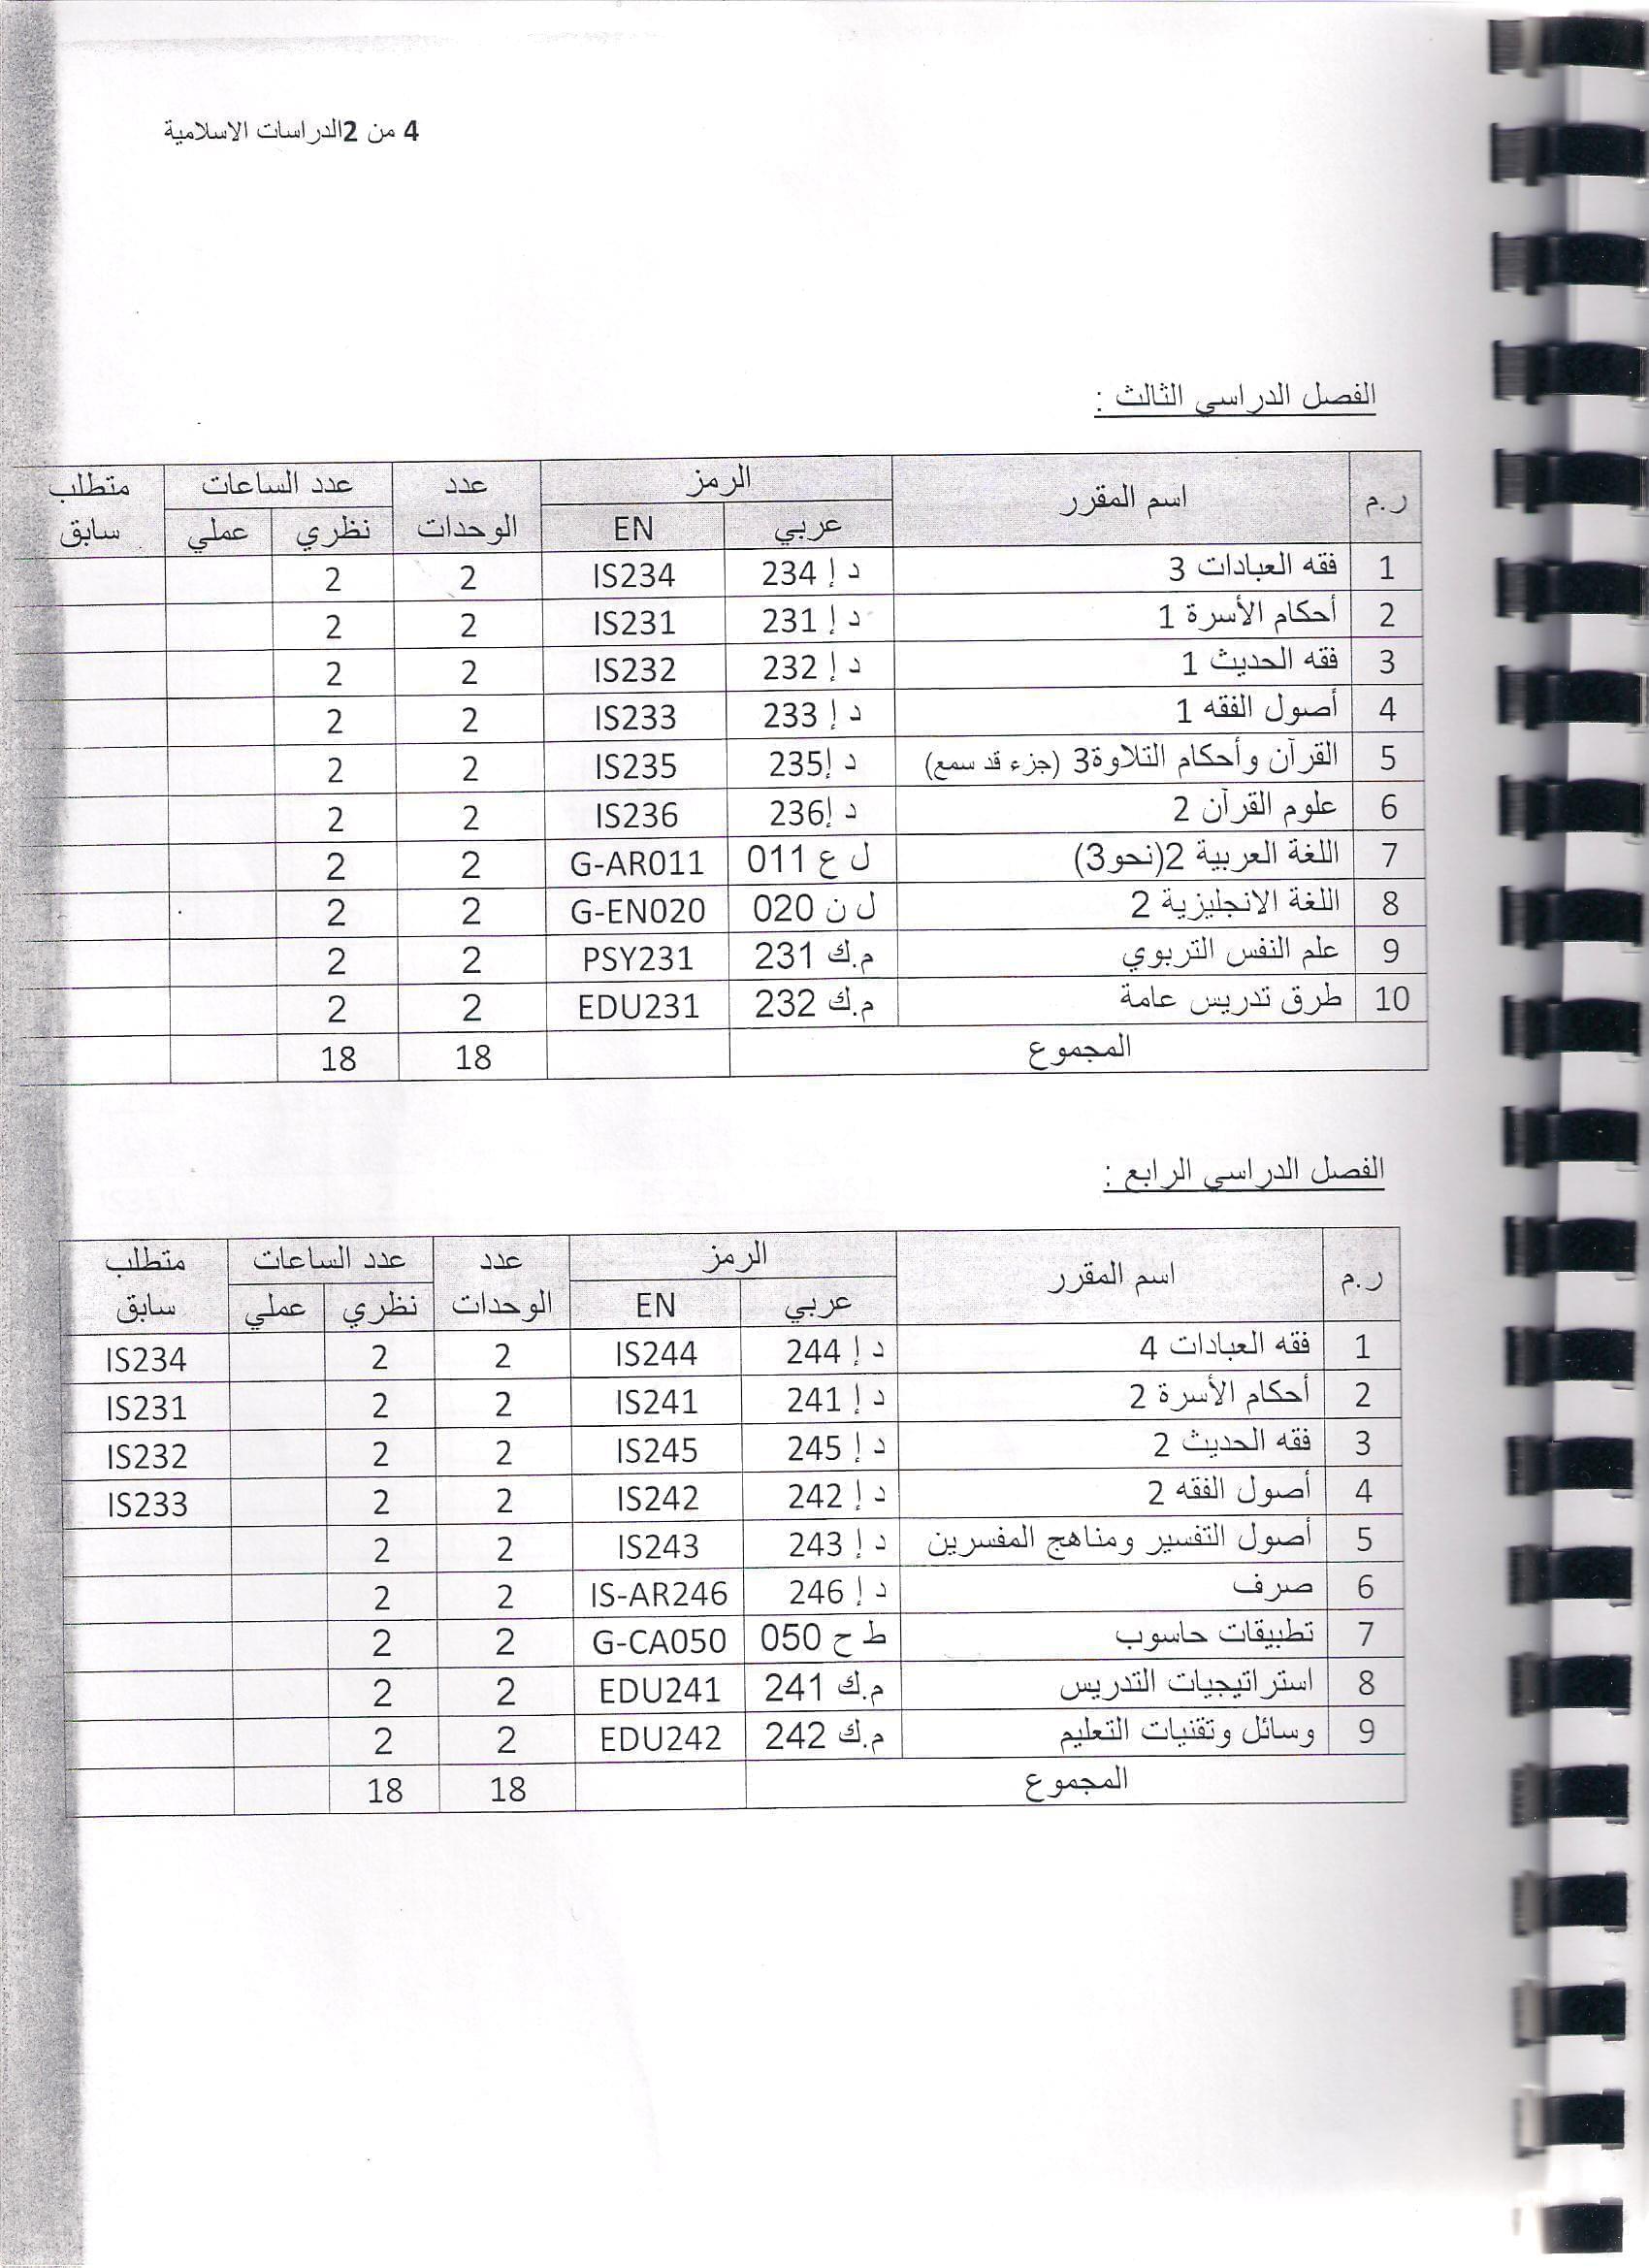 4 من 2الدراسات الاسلامية
الفصل الدراسي الثالث :
ر.م اسم المقرر الرمز عدد الوحدات عدد الساعات متطلب سابق
عربي EN نظري عملي
1 فقه العبادات 3 د إ 234 IS234 2 2
2 أحكام الأسرة 1 د إ 231 IS231 2 2
3 فقه الحديث 1 د إ 232 IS232 2 2
4 أصول الفقه 1 د إ 233 IS233 2 2
5 القرآن وأحكام التلاوة3 (جزء قد سمع) د إ235 IS235 2 2
6 علوم القرآن 2 د إ236 IS236 2 2
7 اللغة العربية 2(نحو3) ل ع 011 G-AR011 2 2
8 اللغة الانجليزية 2 ل ن 020 G-EN020 2 2
9 علم النفس التربوي م.ك 231 PSY231 2 2
10 طرق تدريس عامة م.ك 232 EDU231 2 2
المجموع 18 18
الفصل الدراسي الرابع :
ر.م اسم المقرر الرمز عدد الوحدات عدد الساعات متطلب سابق
عربي EN نظري عملي
1 فقه العبادات 4 د إ 244 IS244 2 2 IS234
2 أحكام الأسرة 2 د إ 241 IS241 2 2 IS231
3 فقه الحديث 2 د إ 245 IS245 2 2 IS232
4 أصول الفقه 2 د إ 242 IS242 2 2 IS233
5 أصول التفسير ومناهج المفسرين د إ 243 IS243 2 2
6 صرف د إ 246 IS-AR246 2 2
7 تطبيقات حاسوب ط ح 050 G-CA050 2 2
8 استراتيجيات التدريس م.ك 241 EDU241 2 2
9 وسائل وتقنيات التعليم م.ك 242 EDU242 2 2
المجموع 18 18